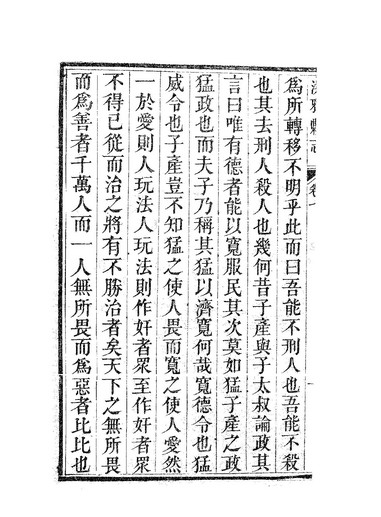 縣志
卷
爲所轉移不明乎此而曰吾能不刑人也吾能不殺
也其去刑人殺人也幾何昔子產與子太叔論政其
言曰唯有德者能以寬服民其次莫如猛子產之政
猛政也而夫子乃稱其猛以濟寬何哉寬德令也猛
威令也子產豈不知猛之使人畏而寬之使人愛然
一於愛則人玩法人玩法則作奸者眾至作奸者眾
不得已從而治之將有不勝治者矣天下之無所畏
而爲善者千萬人而一人無所畏而爲惡者比比也